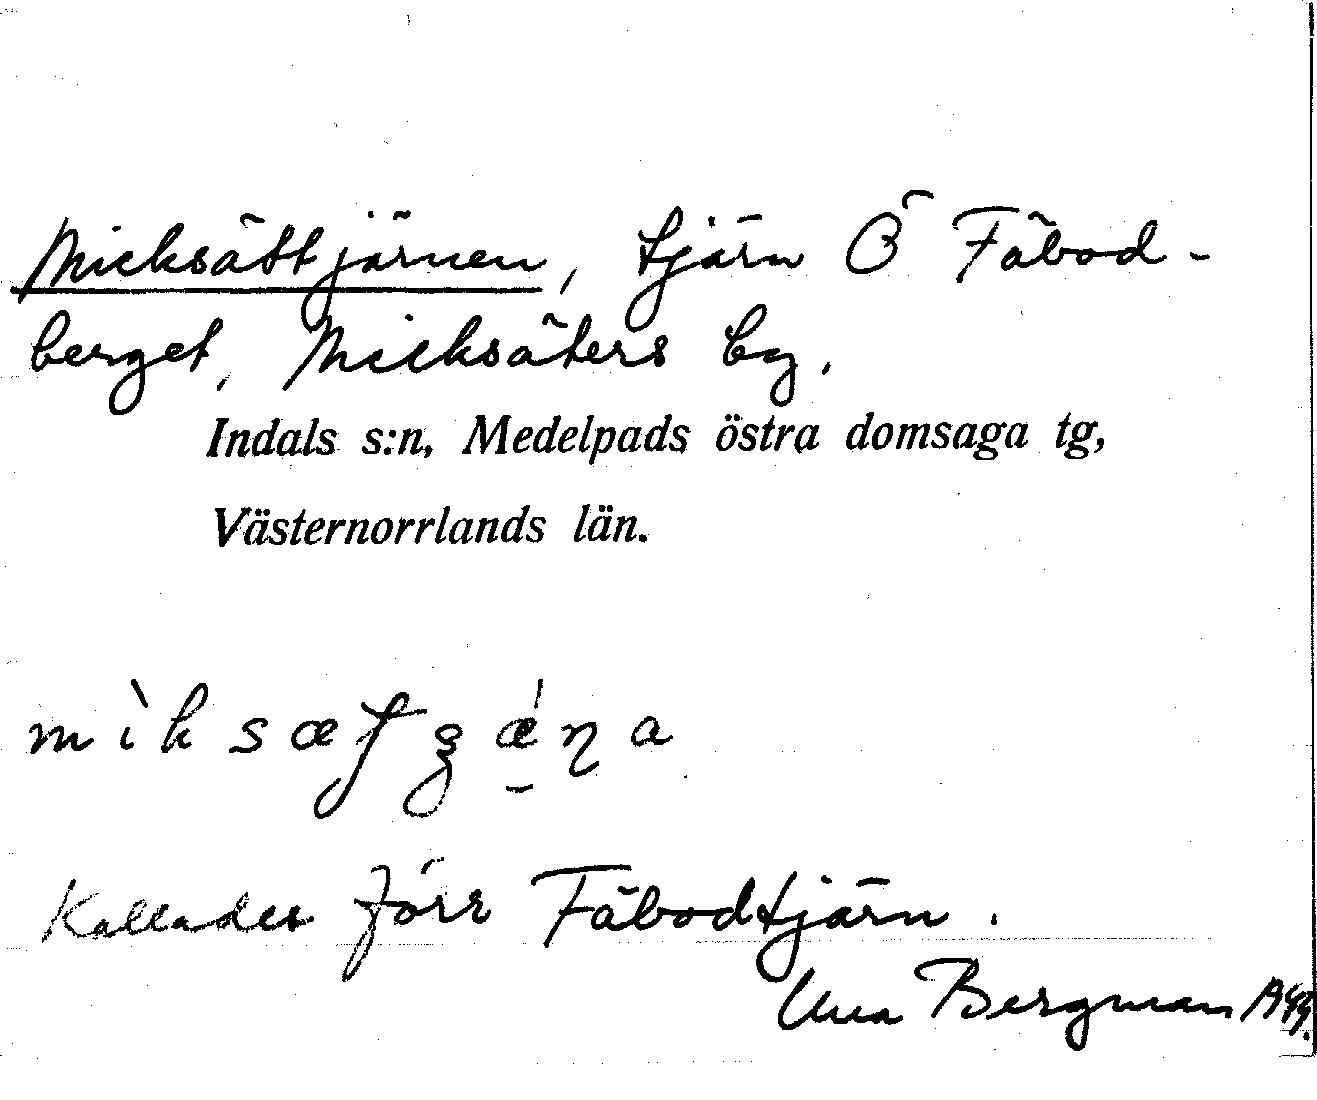 Micksättjärnen, tjärn Ö Fäbod-
berget, Micksäters by.
Indals s:n, Medelpads östra domsaga tg,
Västernorrlands län.
Kallades förr Fäbodtjärn.
Bergman